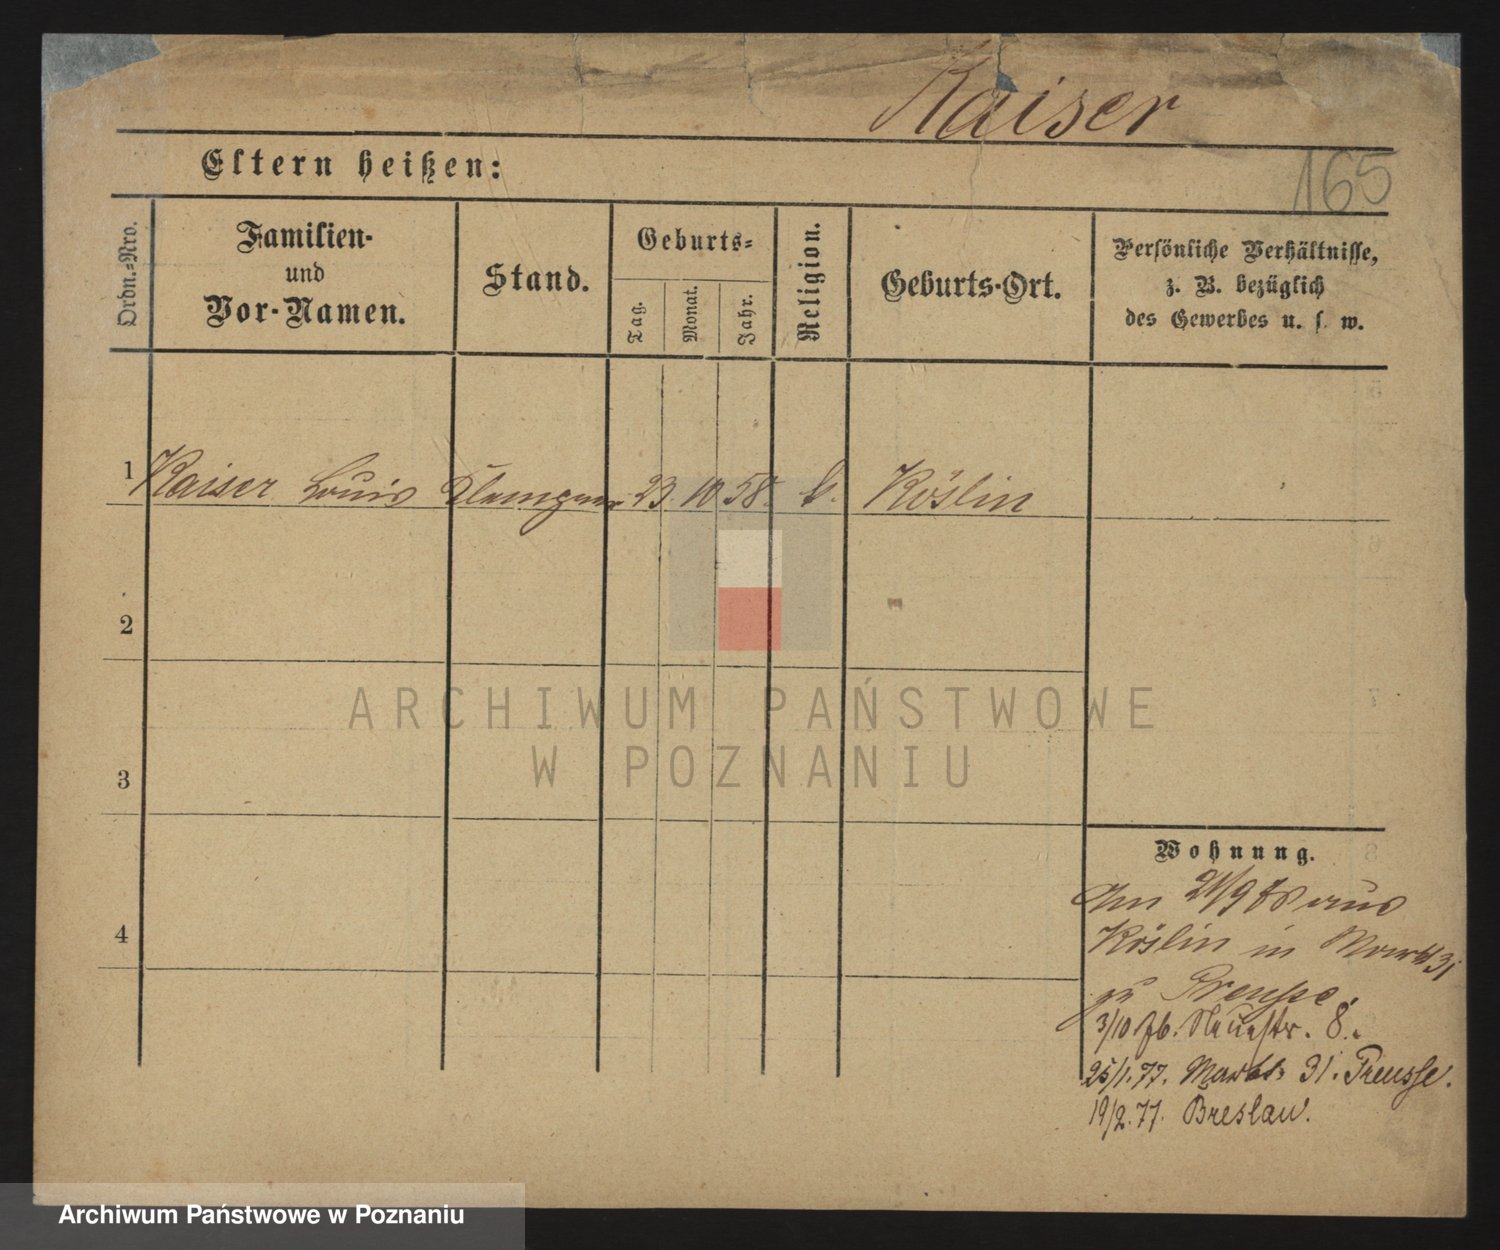 Kaiser
165
Eltern heißen:
Ordn.-Nro.
Familien-
und
Vor-Namen.
Stand.
Geburts-
Tag.
Monat.
Jahr.
Religion.
Geburts-Ort.
Persönliche Verhältnisse,
z. B. bezüglich
des Gewerbes u. s. w.
1 Kaiser Louis Klempner 23. 10 58. Köslin
2
ARCHIWUM PAŃSTWOWE
W POZNANIU
3
Wohnung.
4
21/9 aus
Köslin in Markt 31
zu Preusse.
3/10 Neuestr. 8.
25/1.77. Markt 31. Preusse.
19/2.77. Breslau.
Archiwum Państwowe w Poznaniu